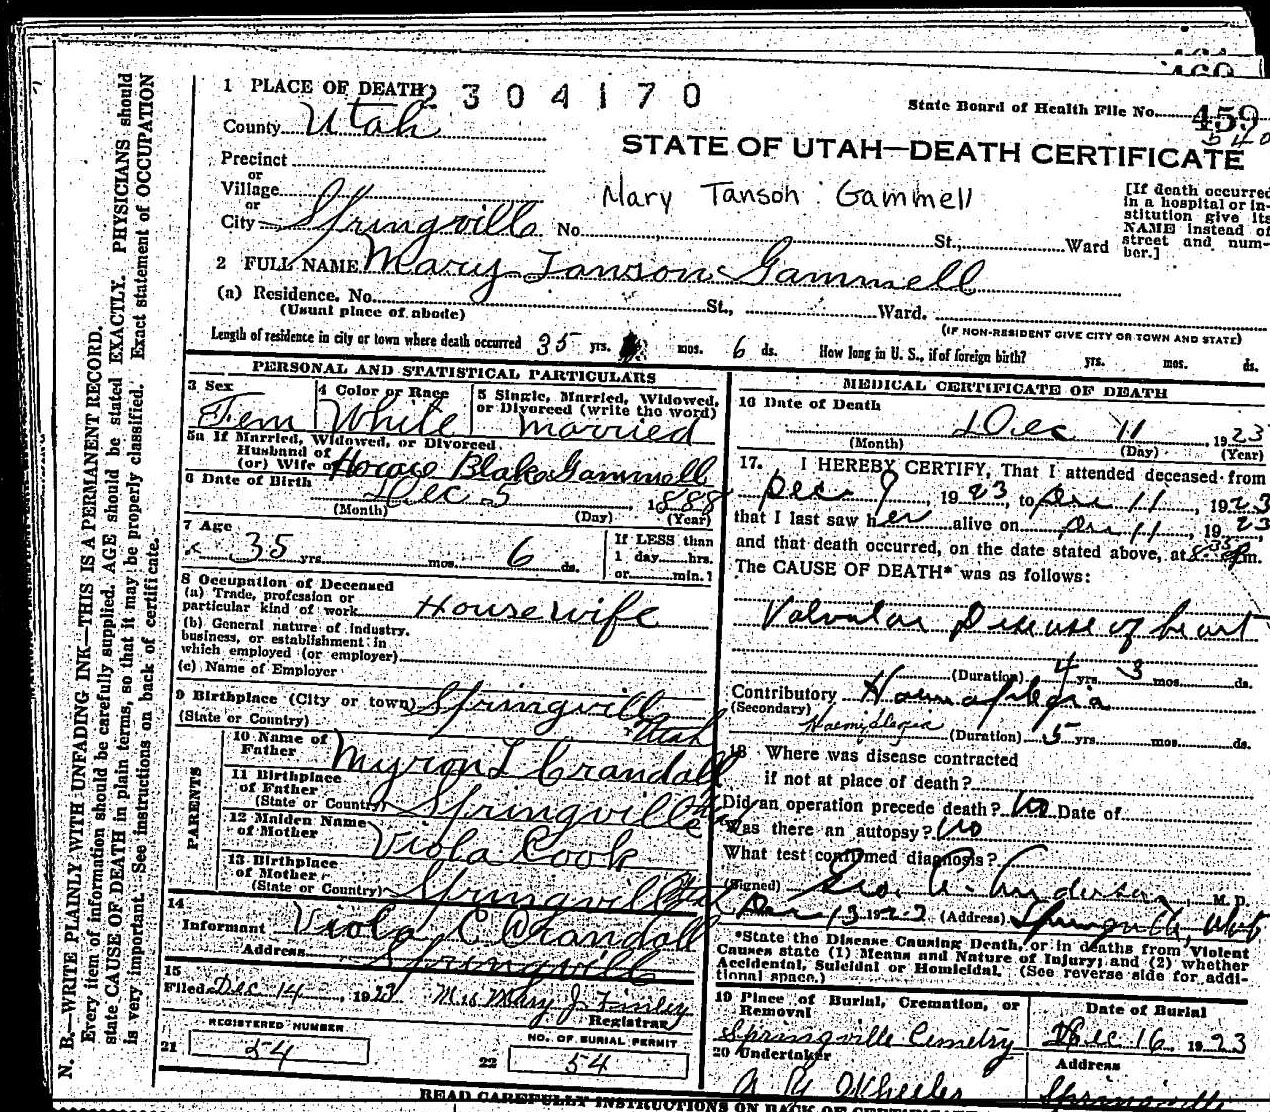 1 PLACE OF DEATH
2304170
State Board of Health File No. 459
540
County Utah
STATE OF UTAH—DEATH CERTIFICATE
Precinct
or
Village
or
City Springville No. St., Ward
Mary Tanson Gammell
[If death occurred in a hospital or institution give its NAME instead of street and number.]
2 FULL NAME Mary Tanson Gammell
(a) Residence. No. St., Ward.
(Usual place of abode)
(IF NON-RESIDENT GIVE CITY OR TOWN AND STATE)
Length of residence in city or town where death occurred 35 yrs. mos. 6 ds. How long in U. S., if of foreign birth? yrs. mos. ds.
PERSONAL AND STATISTICAL PARTICULARS
3 Sex
Fem
4 Color or Race
White
5 Single, Married, Widowed,
or Divorced (write the word)
married
5a If Married, Widowed, or Divorced.
Husband of
(or) Wife of Horace Blake Gammell
6 Date of Birth
Dec 5, 1888
(Month) (Day) (Year)
7 Age
35 yrs. mos. 6 ds.
If LESS than
1 day hrs.
or min.?
8 Occupation of Deceased
(a) Trade, profession or
particular kind of work Housewife
(b) General nature of industry.
business, or establishment in
which employed (or employer)
(c) Name of Employer
9 Birthplace (City or town) Springville
(State or Country) Utah
PARENTS
10 Name of
Father Myron L Crandall
11 Birthplace
of Father
(State or Country) Springville
12 Maiden Name
of Mother Viola Cook
13 Birthplace
of Mother
(State or Country) Springville
14
Informant Viola C Crandall
Address Springville
15
Filed Dec 14, 1923 Mrs Mary J Finley
Registrar
REGISTERED NUMBER
21 54
NO. OF BURIAL PERMIT
22 54
MEDICAL CERTIFICATE OF DEATH
16 Date of Death
Dec 11, 1923
(Month) (Day) (Year)
17. I HEREBY CERTIFY, That I attended deceased from
Dec 9, 1923, to Dec 11, 1923
that I last saw her alive on Dec 11, 1923
and that death occurred, on the date stated above, at 8 pm.
The CAUSE OF DEATH* was as follows:
Valvular Disease of heart
(Duration) 4 yrs. 3 mos. ds.
Contributory
(Secondary)
Haemaplegia
Haemiplegia
(Duration) 5 yrs. mos. ds.
18 Where was disease contracted
if not at place of death?
Did an operation precede death? no Date of
Was there an autopsy? no
What test confirmed diagnosis?
(Signed) Geo. A. Anderson, M. D.
Dec 13 192 (Address) Springville, Utah
*State the Disease Causing Death, or in deaths from Violent
Causes state (1) Means and Nature of Injury; and (2) whether
Accidental, Suicidal or Homicidal. (See reverse side for addi-
tional space.)
19 Place of Burial, Cremation, or
Removal
Springville Cemetry
Date of Burial
Dec 16 1923
20 Undertaker
A Y Wheeler
Address
Springville
READ CAREFULLY INSTRUCTIONS ON BACK OF CERTIFICATE
N. B.—WRITE PLAINLY WITH UNFADING INK—THIS IS A PERMANENT RECORD.
Every item of information should be carefully supplied. AGE should be stated EXACTLY. PHYSICIANS should
state CAUSE OF DEATH in plain terms, so that it may be properly classified. Exact statement of OCCUPATION
is very important. See instructions on back of certificate.